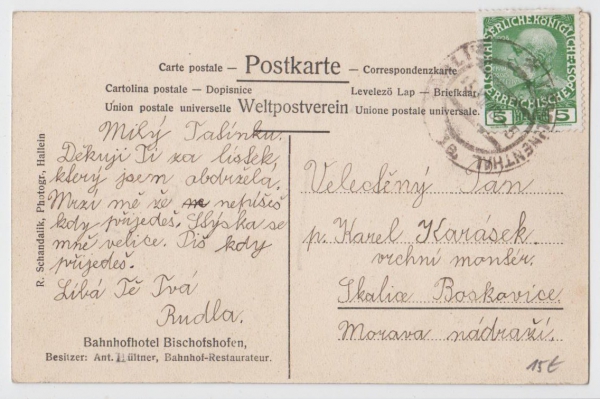 Carte postale — Postkarte — Correspondenzkarte
Cartolina postale — Dopisnice
Levelező Lap — Briefkaart
Union postale universelle Weltpostverein Unione postale universale.
KAISERLICHE KÖNIGLICHE
ÖSTERREICHISCHE
5 5
R. Schandalik, Photogr., Hallein
Milý Tatínku.
Děkuji Ti za lístek,
který jsem obdržela.
Mrzí mě že nepíšeš
kdy přijedeš. Stýska se
mně velice. Piš kdy
přijedeš.
Líbá Tě Tvá
Rudla.
Bahnhofhotel Bischofshofen,
Besitzer: Ant. Hüttner, Bahnhof-Restaurateur.
Velectěný Pan
p. Karel Karásek.
vrchní montér.
Skalice Boskovice.
Morava nádraží.
15€